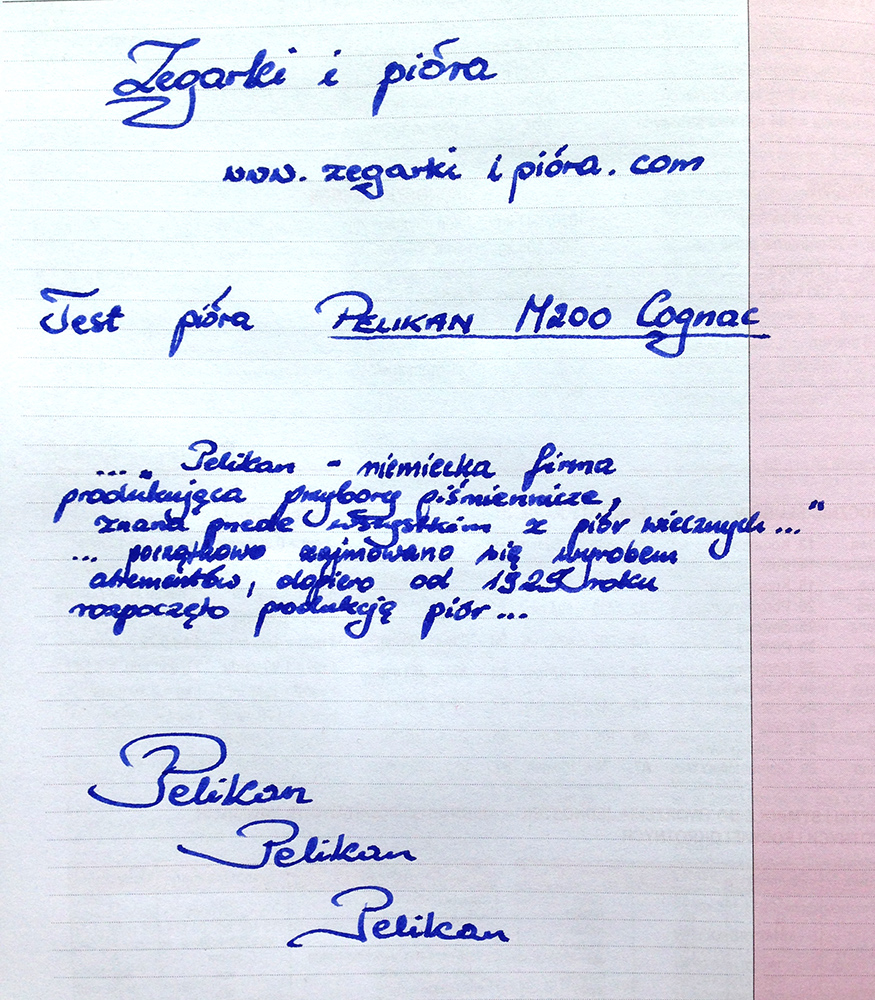 Zegarki i pióra
www.zegarki i pióra.com
Test pióra PELIKAN M200 Cognac
... „ Pelikan - niemiecka firma
produkująca przybory piśmiennicze,
znana przede wszystkim z piór wiecznych..."
... początkowo zajmowano się wyrobem
atramentów, dopiero od 1929 roku
rozpoczęto produkcję piór...
Pelikan
Pelikan
Pelikan